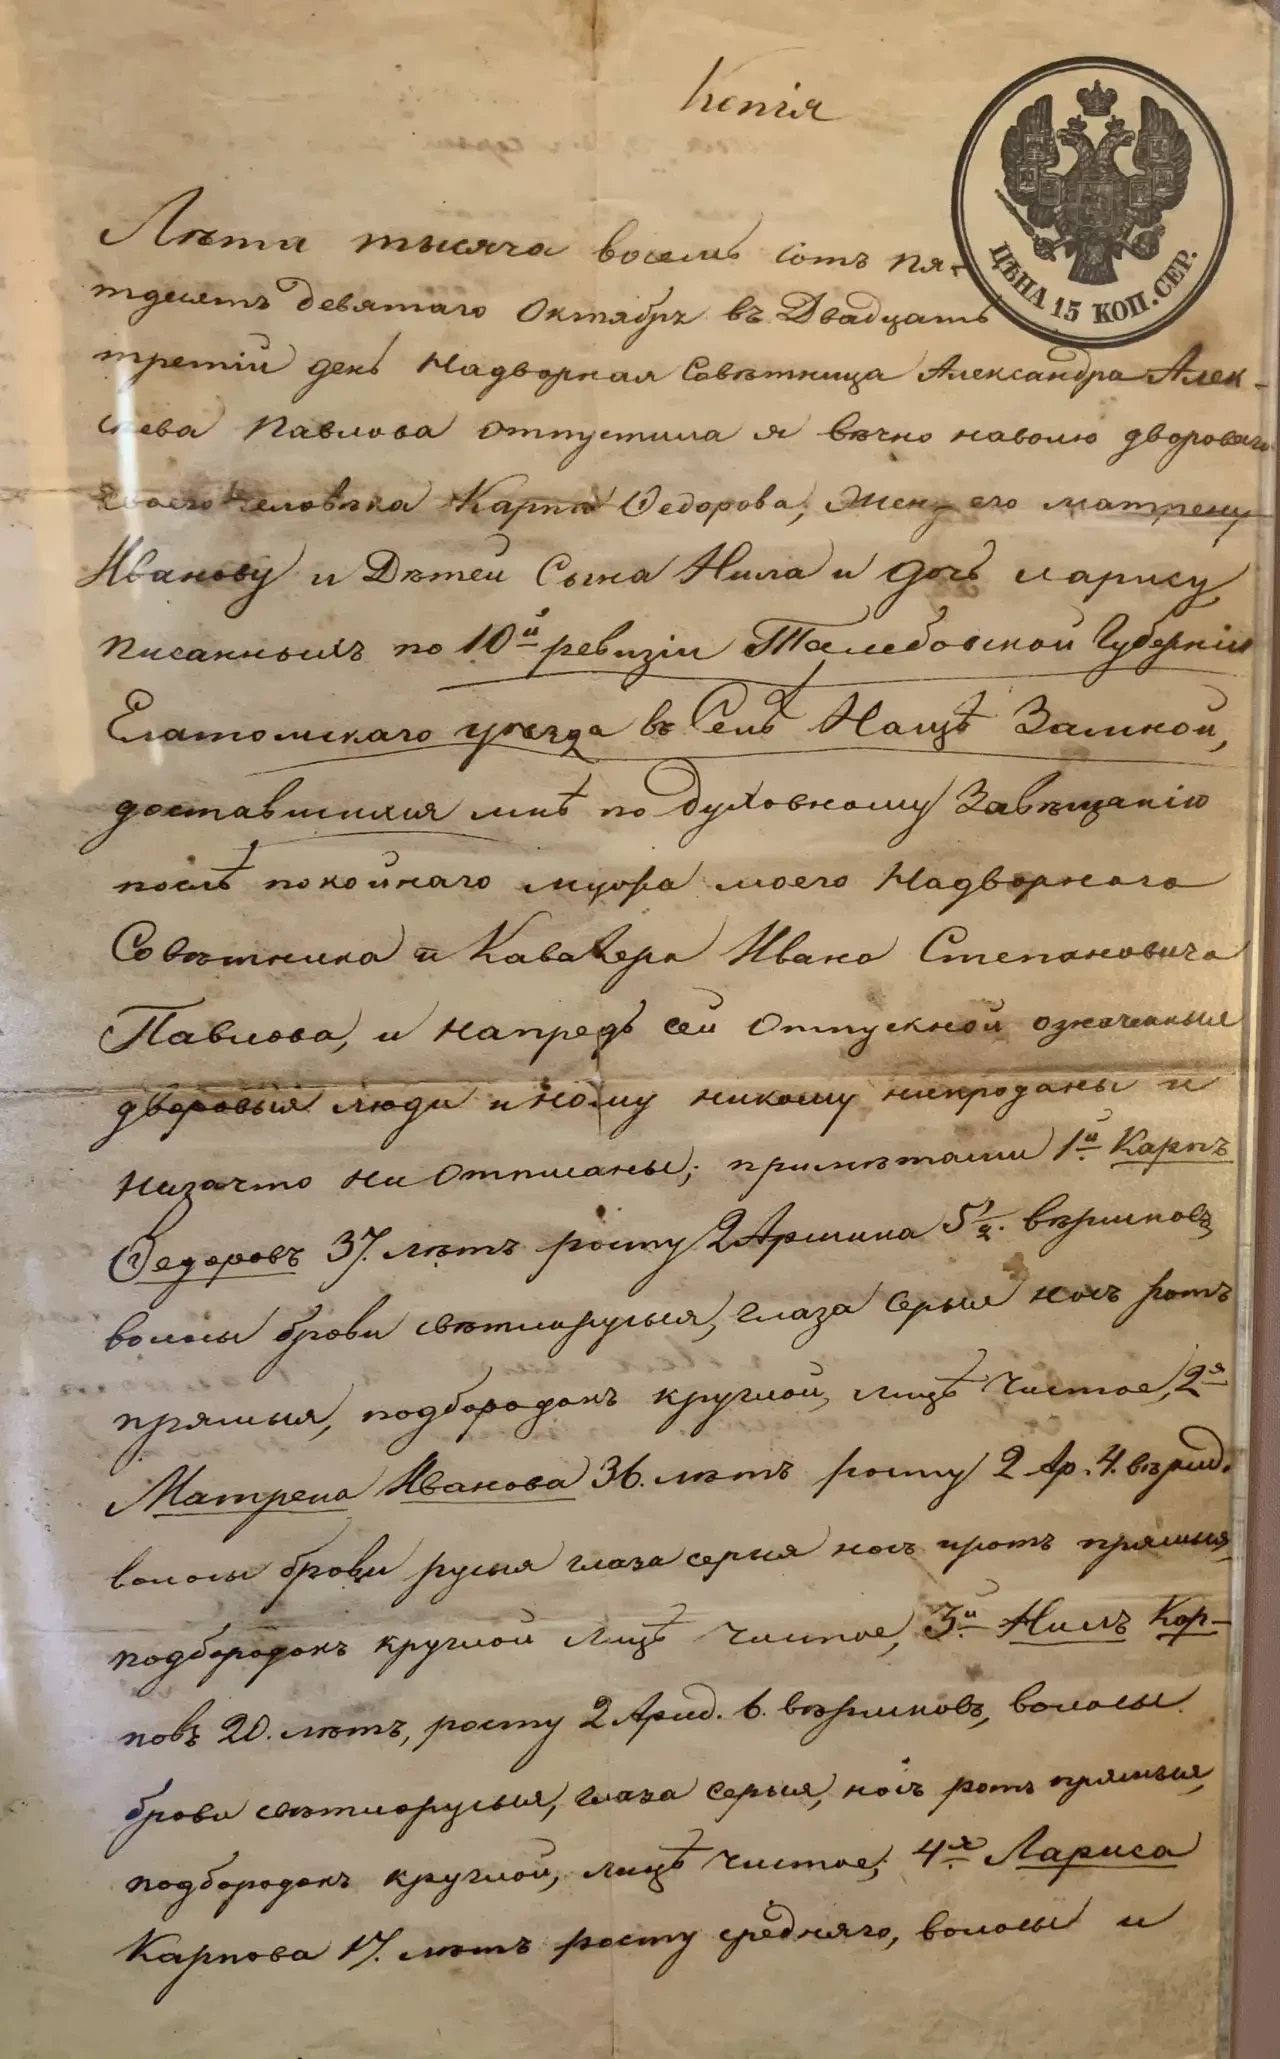 Копія
ЦѢНА 15 КОП. СЕР.
Лѣта тысяча восемь сотъ пя-
тдесятъ девятаго Октября въ Двадцать
третій день Надворная Совѣтница Александра Алек-
сѣева Павлова отпустила я вѣчно наволю двороваго
своего человѣка Карпа Ѳедорова, Жену его матрену
Иванову и Дѣтей Сына Нила и дочь ларису
писанныхъ по 10й ревизіи Тамбовской Губерніи
Елатомскаго уѣзда въ Селѣ Нащѣ Замкой,
доставшихся мнѣ по духовному Завѣщанію
послѣ покойнаго мужа моего Надворнаго
Совѣтника и Кавалера Ивана Степановича
Павлова, и напредь сей Отпускной означенныя
дворовыя люди иному никому непроданы и
низачто ни отписаны; примѣтами 1й Карпъ
Ѳедоровъ 37. лѣтъ росту 2 Аршина 5 1/2. вѣршковъ,
волосы брови свѣтлорусыя, глаза серыя носъ ротъ
прямыя, подбородокъ круглой, лицѣ чистое, 2я
Матрена Иванова 36. лѣтъ росту 2 Ар. 4. вѣрш.
волосы брови русыя глаза серыя носъ иротъ прямыя,
подбородокъ круглой лицѣ чистое, 3й Нилъ Кар-
повъ 20. лѣтъ, росту 2 Арш. 6. вѣршковъ, волосы
брови свѣтлорусыя, глаза серыя, носъ ротъ прямыя,
подбородокъ круглой, лицѣ чистое; 4я Лариса
Карпова 17. лѣтъ росту средняго, волосы и